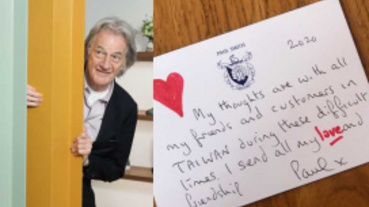 PAUL SMITH
2020
My thoughts are with all
my friends and customers in
TAIWAN during these difficult
times. I send all my love and
friendship Paul x